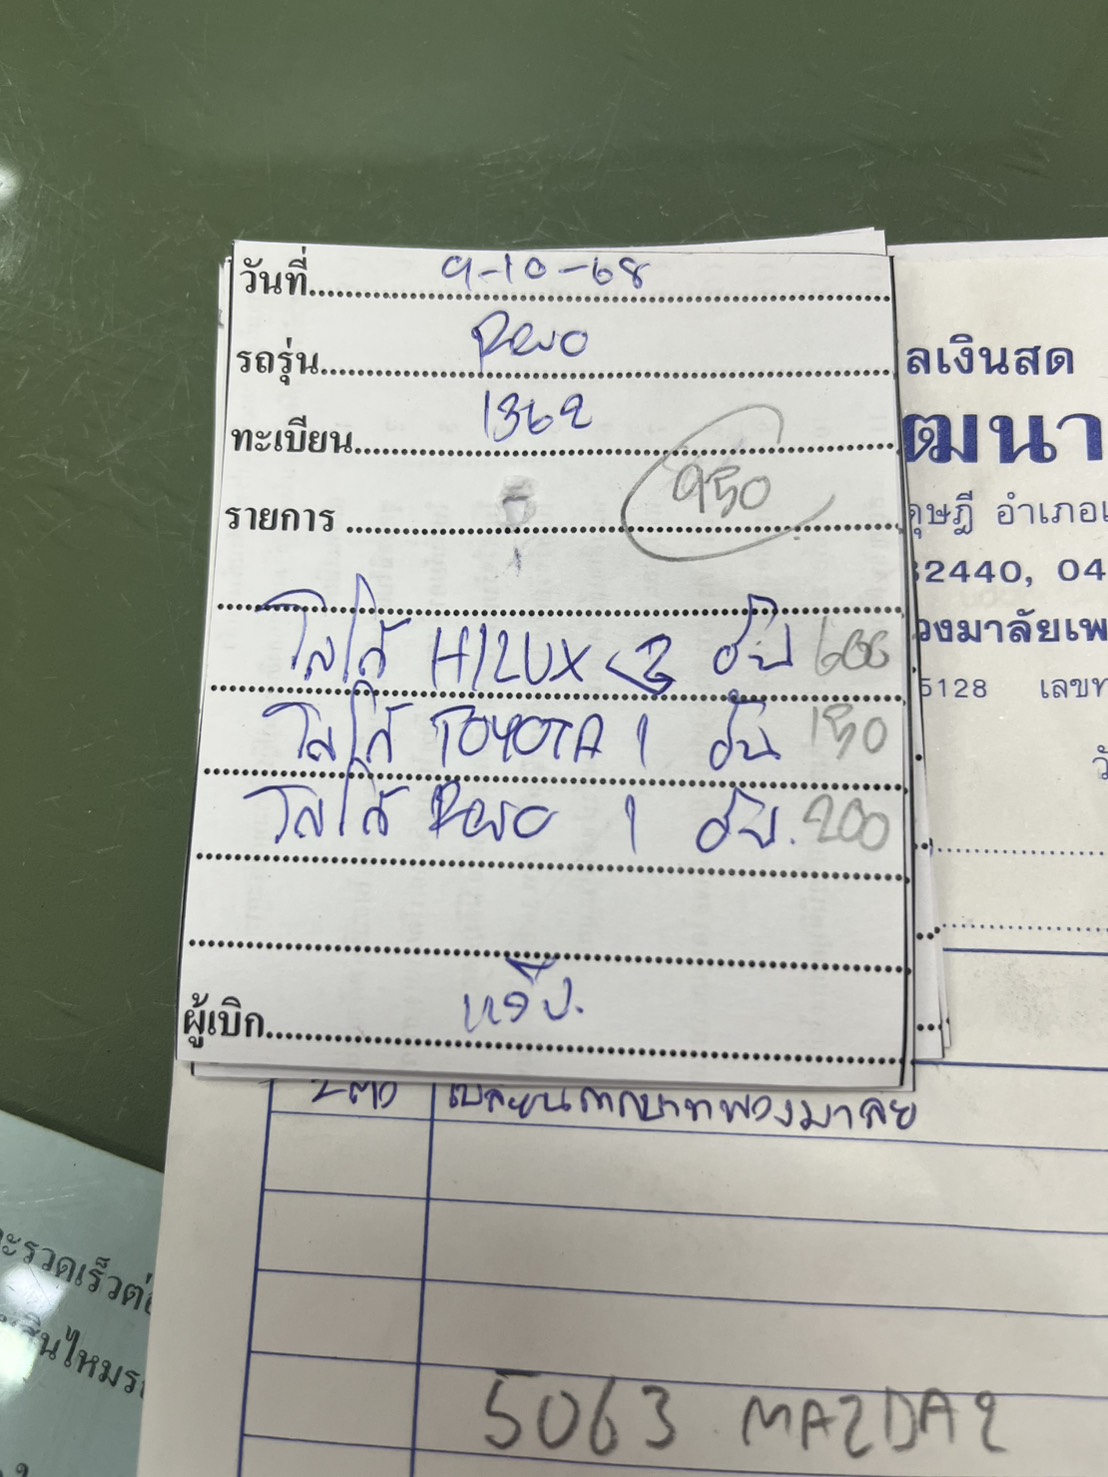 วันที่ 9-10-68
รถรุ่น Revo
ทะเบียน 1362
รายการ 950
โลโก้ HILUX 3 อัน 600
โลโก้ TOYOTA 1 อัน 150
โลโก้ Revo 1 อัน. 200
ผู้เบิก
ลเงินสด
ฒนา
ดุษฎี อำเภอเ
32440, 04
วงมาลัยเพ
5128 เลขท
วั
พวงมาลัย
5063 MAZDA2
ะรวดเร็วต่อ
สินไหมร